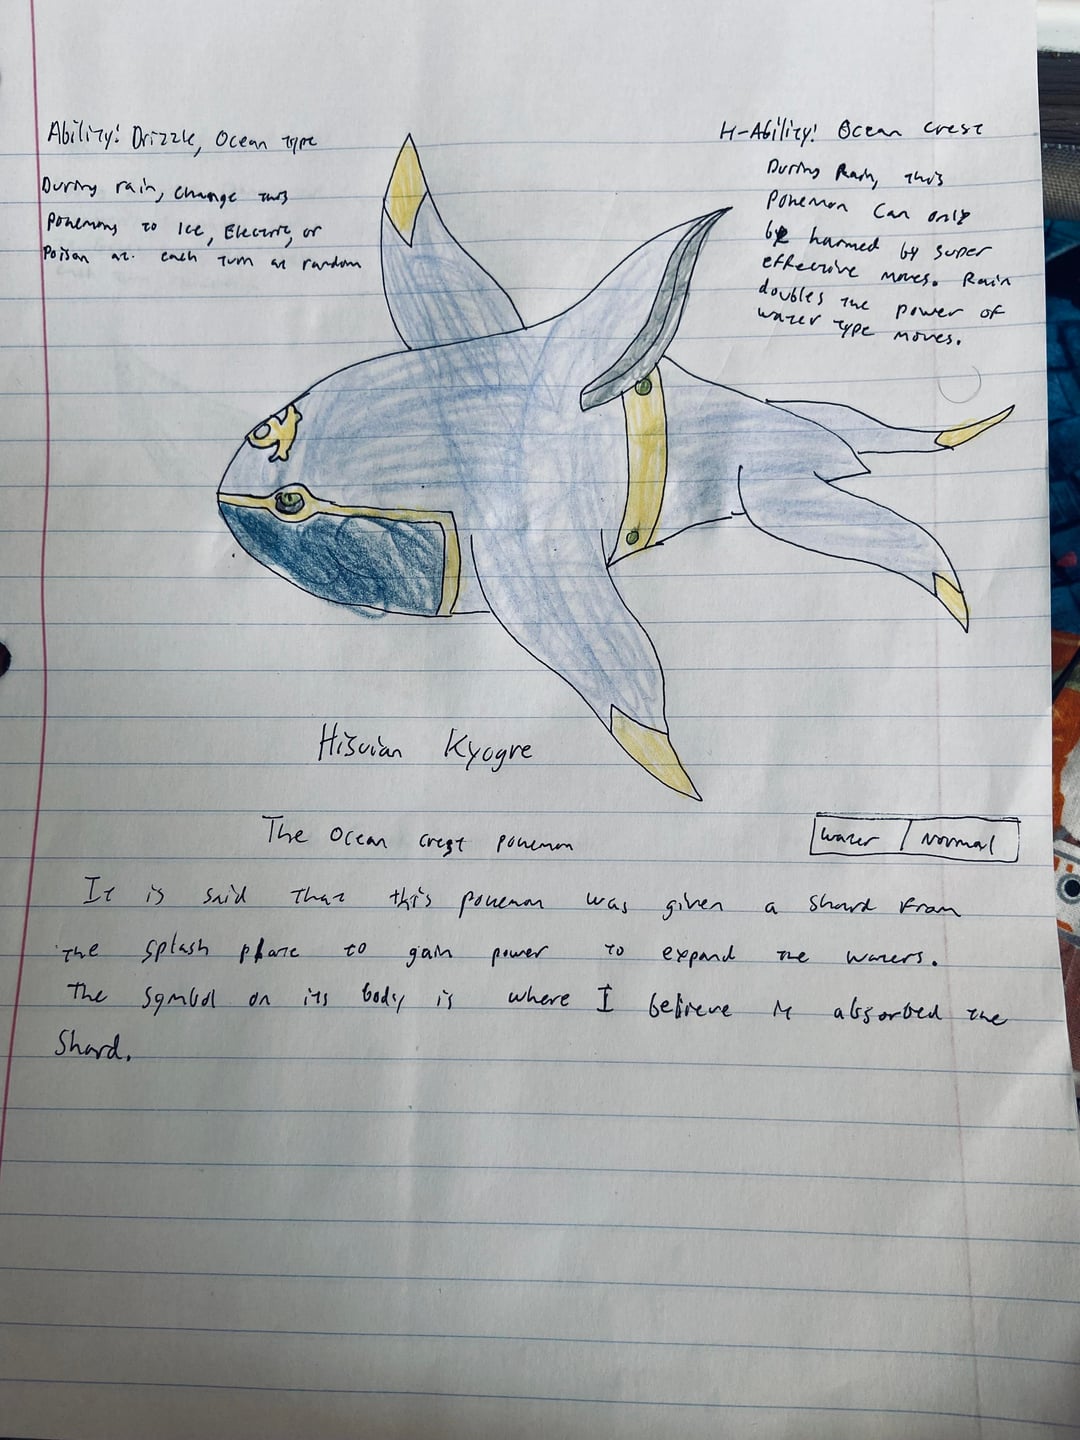 Ability: Drizzle, Ocean Type
During rain, change this
Pokemons to Ice, Electric, or
Poison at each turn at random
H-Ability: Ocean Crest
During Rain, this
Pokemon can only
be harmed by super
effective moves. Rain
doubles the power of
water type moves.
Hisuian Kyogre
The Ocean crest pokemon
Water / Normal
It is said that this pokemon was given a shard from
the splash plate to gain power to expand the waters.
The symbol on its body is where I believe it absorbed the
Shard.